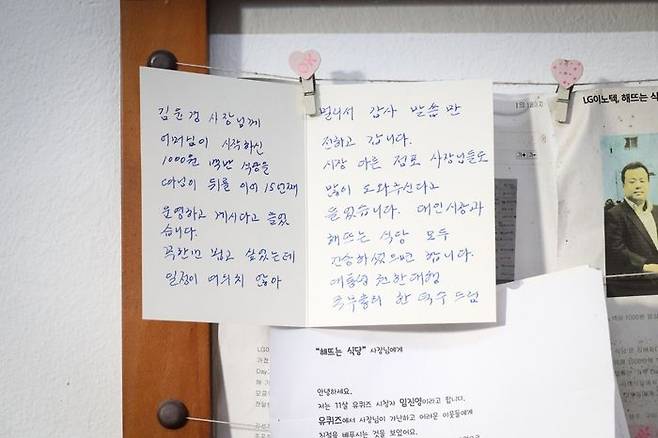 김윤경 사장님께
어머님이 시작하신
1000원 백반 식당을
따님이 뒤를 이어 15년째
운영하고 계시다고 들었
습니다.
꼭한번 뵙고 싶었는데
일정이 여의치 않아
멀리서 감사 말씀만
전하고 갑니다.
시장 다른 점포 사장님들도
많이 도와주신다고
들었습니다. 대인시장과
해뜨는 식당 모두
번창하셨으면 합니다.
대통령 권한대행
국무총리 한덕수 드림
OK
LG이노텍, 해뜨는 식
"해뜨는 식당" 사장님에게
안녕하세요.
저는 11살 유퀴즈 시청자 임진영이라고 합니다.
유퀴즈에서 사장님이 가난하고 어려운 이웃들에게
친절을 베푸시는 것을 보았어요.